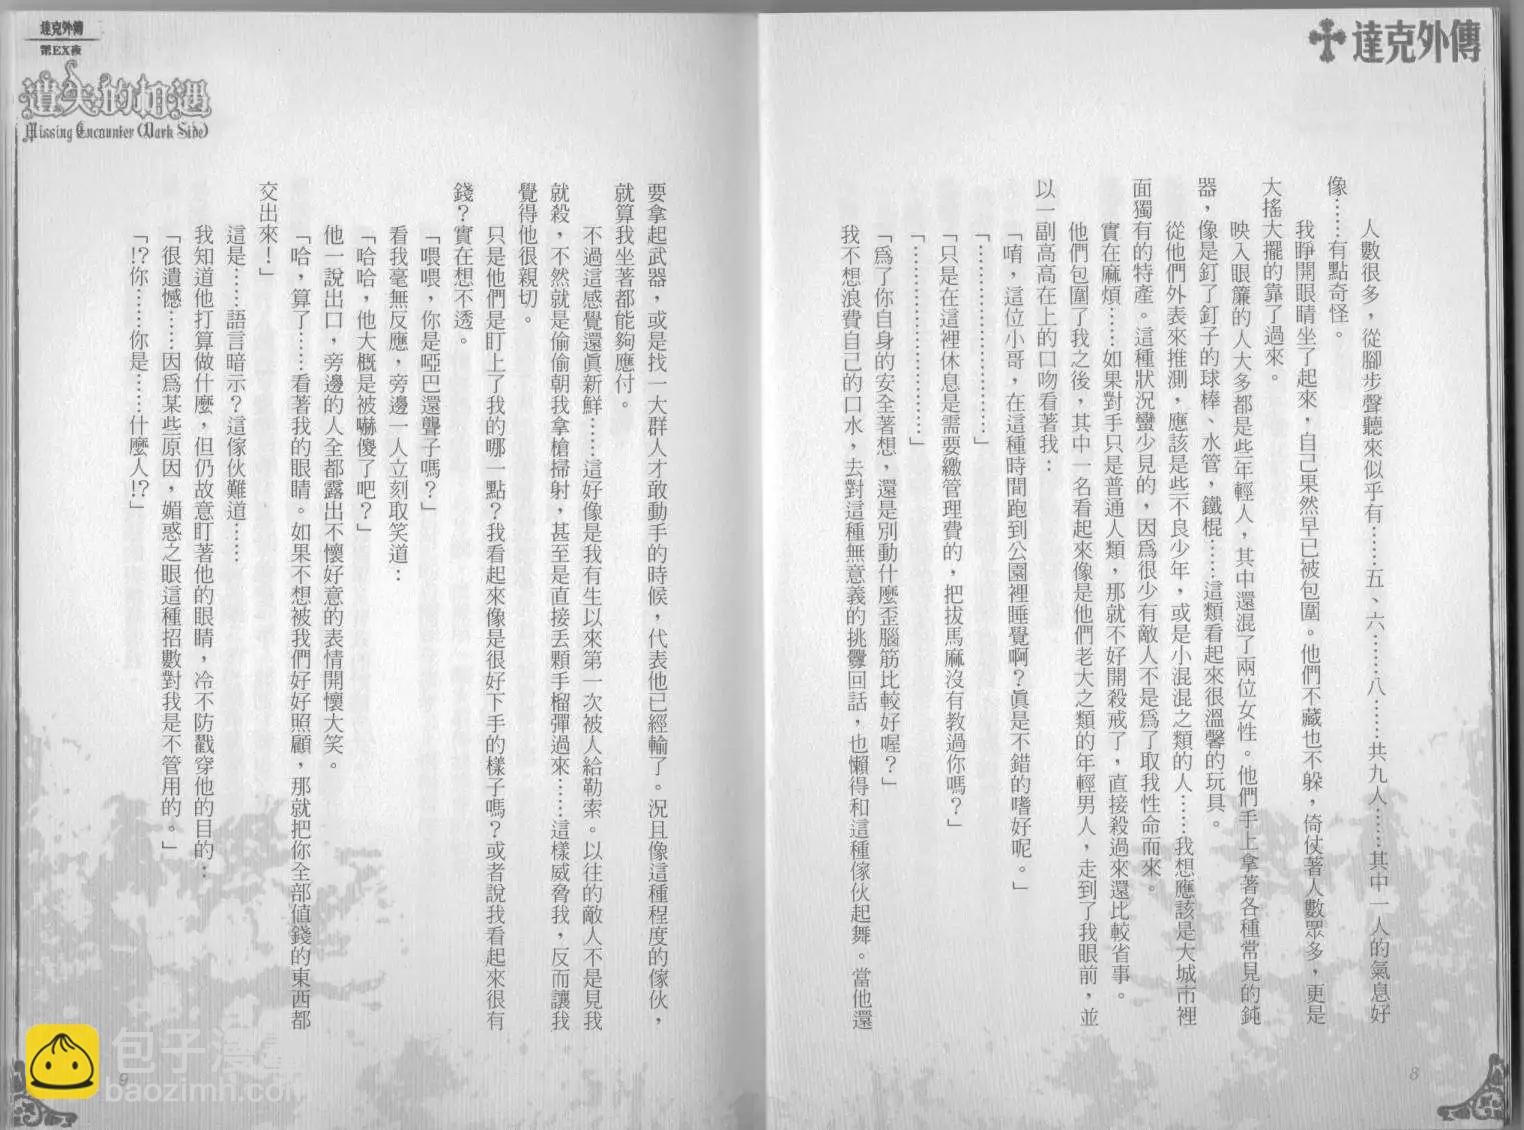 達克外傳
人數很多，從腳步聲聽來似乎有……五、六……八……共九人……其中一人的氣息好
像……有點奇怪。
我睜開眼睛坐了起來，自己果然早已被包圍。他們不藏也不躲，倚仗著人數眾多，更是
大搖大擺的靠了過來。
映入眼簾的人大多都是些年輕人，其中還混了兩位女性。他們手上拿著各種常見的鈍
器，像是釘了釘子的球棒、水管，鐵棍……這類看起來很溫馨的玩具。
從他們外表來推測，應該是些不良少年，或是小混混之類的人……我想應該是大城市裡
面獨有的特產。這種狀況蠻少見的，因為很少有敵人不是為了取我性命而來。
實在麻煩……如果對手只是普通人類，那就不好開殺戒了，直接殺過來還比較省事。
他們包圍了我之後，其中一名看起來像是他們老大之類的年輕男人，走到了我眼前，並
以一副高高在上的口吻看著我：
「唷，這位小哥，在這種時間跑到公園裡睡覺啊？真是不錯的嗜好呢。」
「……………………」
「只是在這裡休息是需要繳管理費的，把拔馬麻沒有教過你嗎？」
「……………………」
「為了你自身的安全著想，還是別動什麼歪腦筋比較好喔？」
我不想浪費自己的口水，去對這種無意義的挑釁回話，也懶得和這種傢伙起舞。當他還
8
達克外傳
第EX夜
遺失的相遇
Missing Encounter (Dark Side)
要拿起武器，或是找一大群人才敢動手的時候，代表他已經輸了。況且像這種程度的傢伙，
就算我坐著都能夠應付。
不過這感覺還真新鮮……這好像是我有生以來第一次被人給勒索。以往的敵人不是見我
就殺，不然就是偷偷朝我拿槍掃射，甚至是直接丟顆手榴彈過來……這樣威脅我，反而讓我
覺得他很親切。
只是他們是盯上了我的哪一點？我看起來像是很好下手的樣子嗎？或者說我看起來很有
錢？實在想不透。
「喂喂，你是啞巴還聾子嗎？」
看我毫無反應，旁邊一人立刻取笑道：
「哈哈，他大概是被嚇傻了吧？」
他一說出口，旁邊的人全都露出不懷好意的表情開懷大笑。
「哈，算了……看著我的眼睛。如果不想被我們好好照顧，那就把你全部值錢的東西都
交出來！」
這是……語言暗示？這傢伙難道……
我知道他打算做什麼，但仍故意盯著他的眼睛，冷不防戳穿他的目的：
「很遺憾……因為某些原因，媚惑之眼這種招數對我是不管用的。」
「!?你……你是……什麼人!?」
9
包子漫畫
baozimh.com